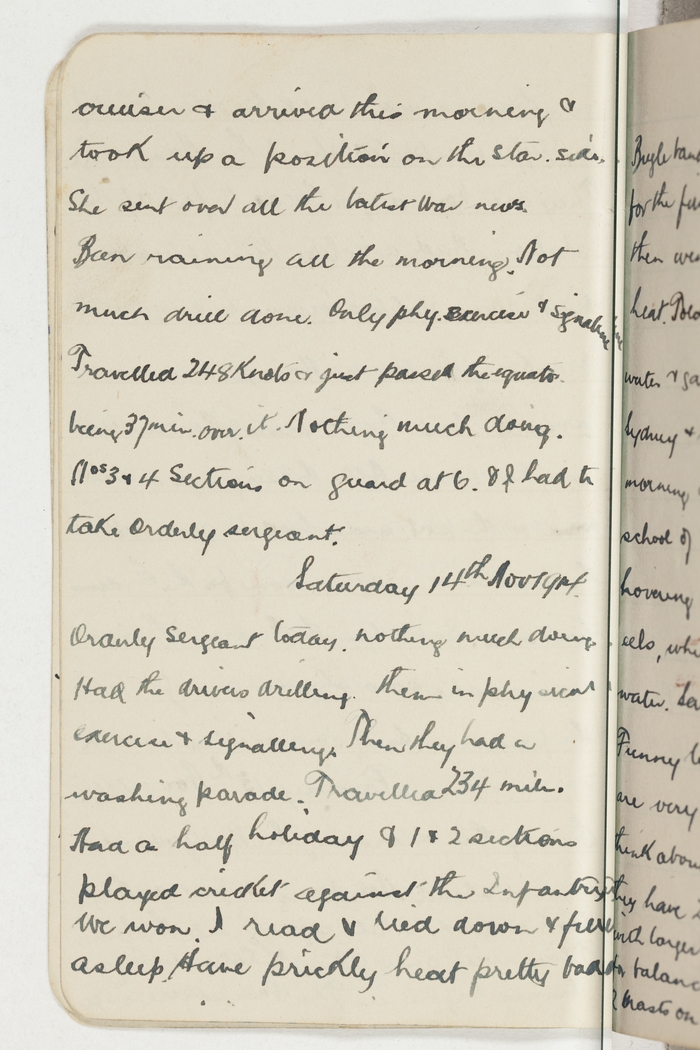 cruiser & arrived this morning &
took up a position on the Star. side.
She sent over all the latest War news.
Been raining all the morning. Not
much drill done. Only phy. exercise & Signalling
Travelled 248 Knots & just passed the equator
being 37 min. over. it. Nothing much doing.
Nos 3 & 4 Sections on guard at 6. & I had to
take Orderly sergeant.
Saturday 14th Nov 1914.
Orderly Sergeant today. nothing much doing.
Had the drivers drilling. them in physical
exercise & signalling. Then they had a
washing parade. Travelled 234 miles.
Had a half holiday & 1 & 2 sections
played cricket against the Infantry
We won. I read & lied down & fell
asleep. Have prickly heat pretty bad
Bugle
for the
then
heat.
water &
Sydney &
morning
school of
hovering
eels,
water.
Funny
are very
think
they have
with larger
for
masts on